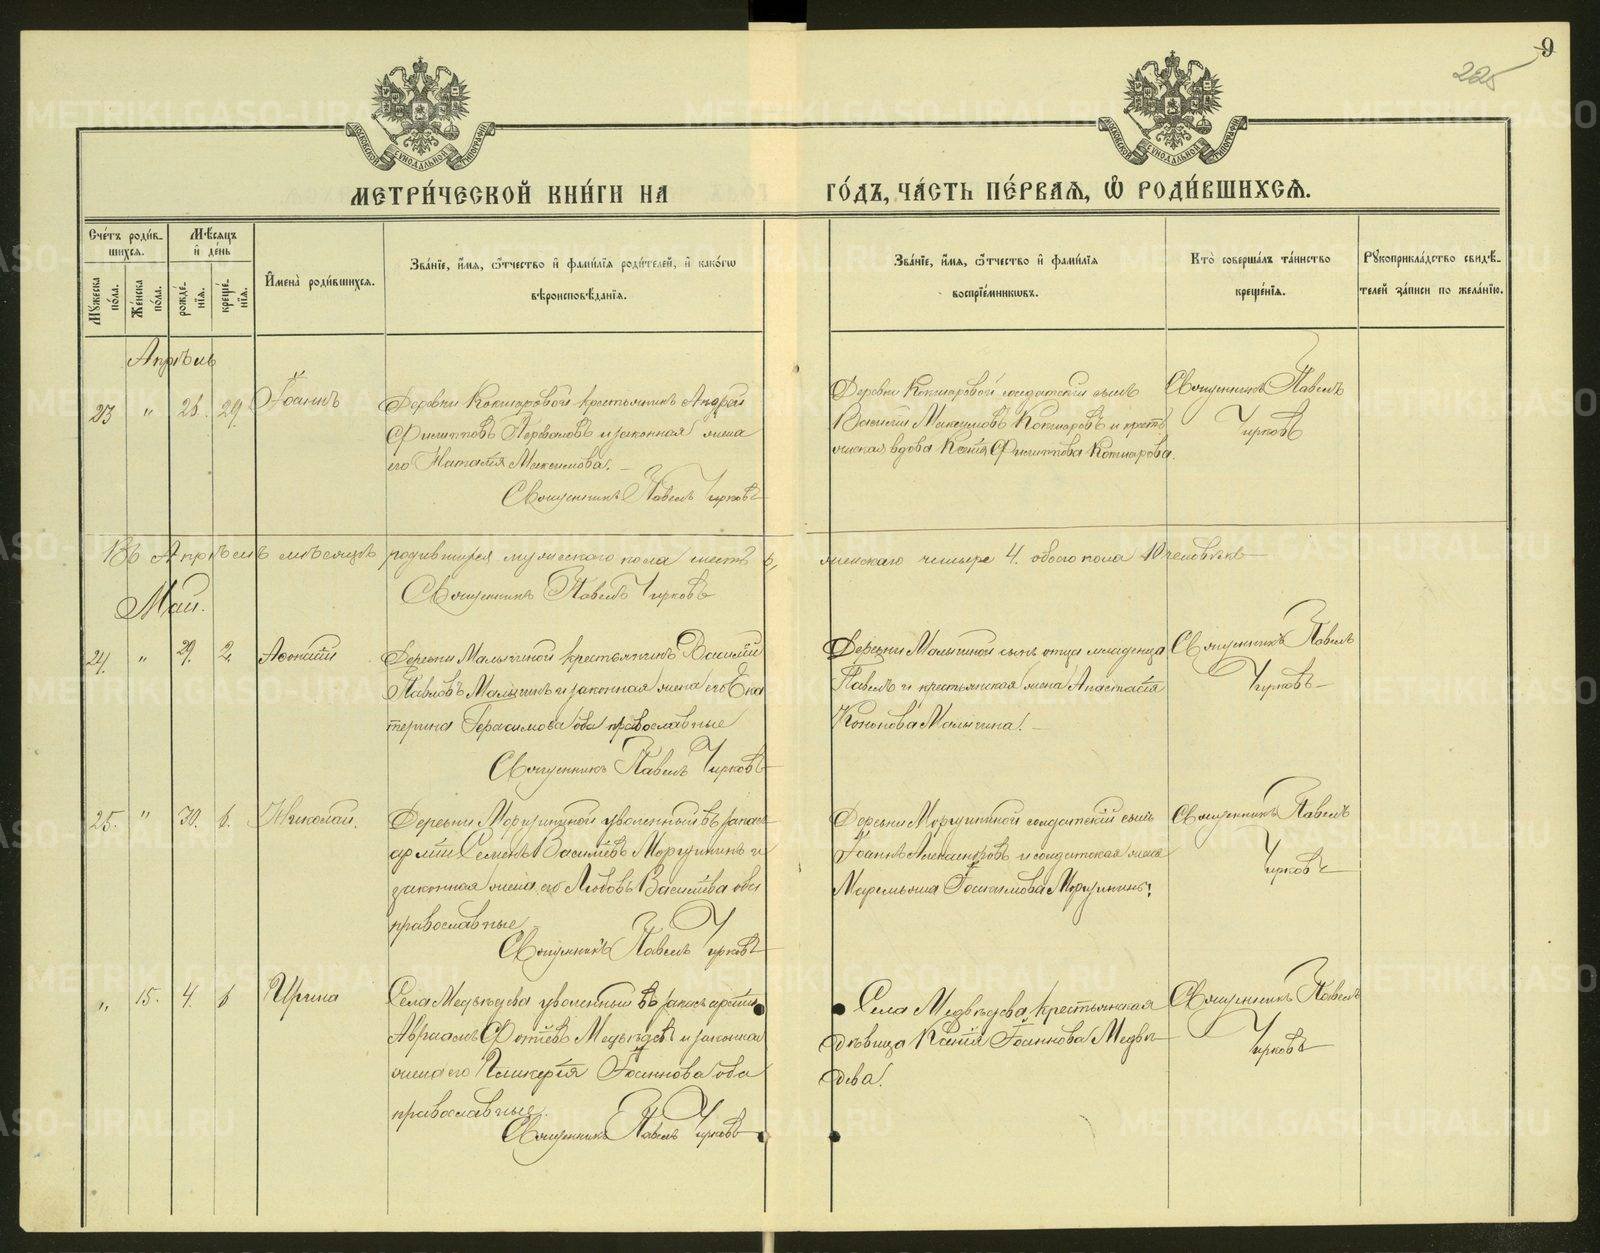 9
225
МЕТРИ́ЧЕСКОЙ КНИ́ГИ НА ГО́ДЪ, ЧА́СТЬ ПЕ́РВАѦ, Ѡ҆ РОДИ́ВШИХСѦ.
Сче́тъ роди́в-
шихся.
Мꙋ́жеска по́ла.
Же́нска по́ла.
Мѣ́сяцъ
и҆ де́нь
рожде́-
нїя.
креще́-
нїя.
И҆мена̀ роди́вшихся.
Зва́нїе, и҆́мя, ѻ҆́тчество и҆ фами́лїя роди́телей, и҆ како́гѡ
вѣроисповѣ́данїя.
Зва́нїе, и҆́мя, ѻ҆́тчество и҆ фами́лїя
воспрїе́мникѡвъ.
Кто̀ соверша́лъ та́инство
креще́нїя.
Рꙋкоприкла́дство свидѣ́-
телей за́писи по жела́нїю.
Апрѣль
23 " 28. 29. Іоаннъ
Деревни Кокшаровой крестьянинъ Андрей
Филипповъ и законная жена
его Наталія Максимова.
Священникъ Павелъ Чирковъ
Деревни Кокшаровой солдатскій сынъ
Василій Максимовъ Кокшаровъ и кресть
янская вдова Ксенія Филиппова Кокшарова.
Священникъ Павелъ
Чирковъ
Въ Апрѣлѣ мѣсяцѣ родившихся мужескаго пола шесть 6, женскаго четыре 4. обоего пола 10 человѣкъ
Священникъ Павелъ Чирковъ
Май.
24. " 29. 2. Аѳанасій
Деревни Малыгиной крестьянинъ Василій
Павловъ Малыгинъ и законная жена его Ека
терина Герасимова оба православные
Священникъ Павелъ Чирковъ
Деревни Малыгиной сынъ отца младенца
Павелъ и крестьянская жена Анастасія
Кононова Малыгина.
Священникъ Павелъ
Чирковъ
25. " 30. 6. Николай.
Деревни уволенный въ запасъ
арміи Семенъ Васильевъ и
законная жена его Любовь Васильева оба
православные
Священникъ Павелъ Чирковъ
Деревни солдатскій сынъ
Іоаннъ Александровъ и солдатская жена
Маремьяна
Священникъ Павелъ
Чирковъ
" 15. 4. 6 Ирина
Села Медвѣдева уволенный въ запасъ арміи
Авраамъ Фотіевъ Медвѣдевъ и законная
жена его Гликерія Іоаннова оба
православные.
Священникъ Павелъ Чирковъ
Села Медвѣдева крестьянская
дѣвица Ксенія Іоаннова Медвѣ
дева.
Священникъ Павелъ
Чирковъ
METRIKI.GASO-URAL.RU